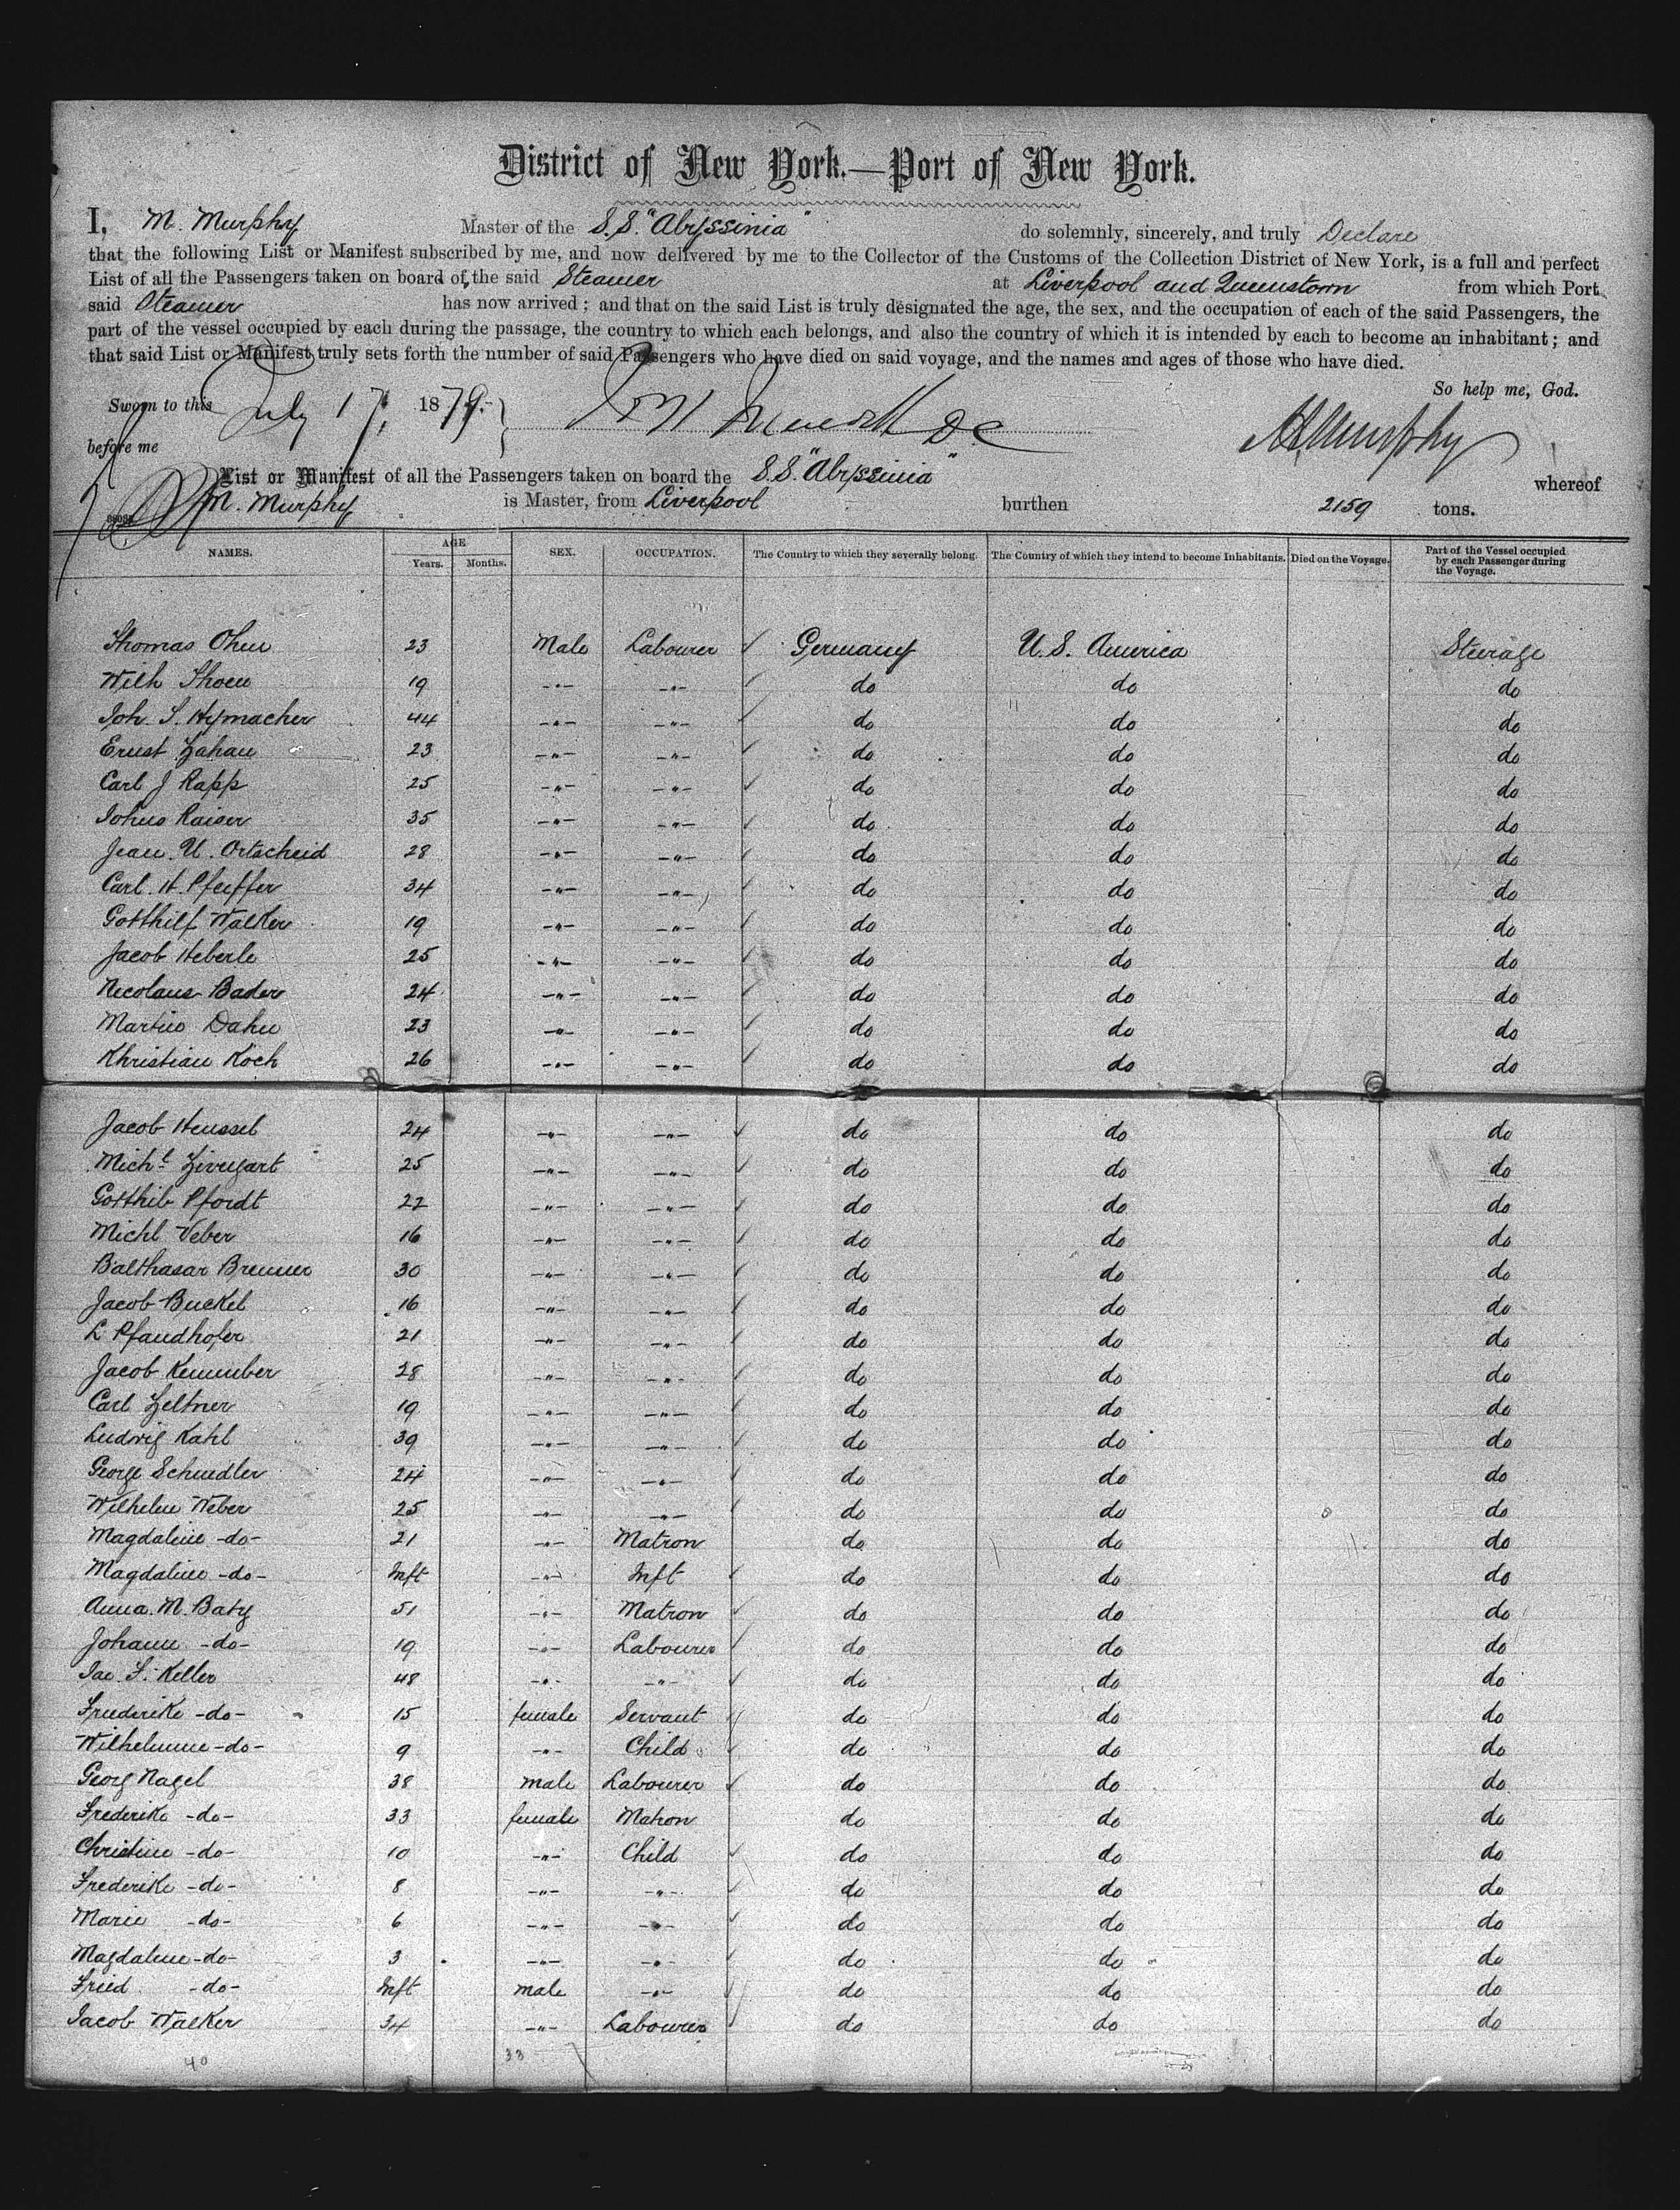 District of New York.—Port of New York.
I, M. Murphy Master of the S.S. "Abyssinia" do solemnly, sincerely, and truly Declare
that the following List or Manifest subscribed by me, and now delivered by me to the Collector of the Customs of the Collection District of New York, is a full and perfect
List of all the Passengers taken on board of the said Steamer at Liverpool and Queenstown from which Port
said Steamer has now arrived; and that on the said List is truly designated the age, the sex, and the occupation of each of the said Passengers, the
part of the vessel occupied by each during the passage, the country to which each belongs, and also the country of which it is intended by each to become an inhabitant; and
that said List or Manifest truly sets forth the number of said Passengers who have died on said voyage, and the names and ages of those who have died.
So help me, God.
Sworn to this July 17, 1879.
before me M Murphy
List or Manifest of all the Passengers taken on board the S.S. "Abyssinia" whereof
M. Murphy is Master, from Liverpool burthen 2159 tons.
NAMES. AGE Years. Months. SEX. OCCUPATION. The Country to which they severally belong. The Country of which they intend to become Inhabitants. Died on the Voyage. Part of the Vessel occupied by each Passenger during the Voyage.
Thomas Ohm 23 Male Labourer Germany U.S. America Steerage
Wilh Thoen 19 -"- -"- do do do
Joh. S. Hymacher 44 -"- -"- do do do
Ernst Zahau 23 -"- -"- do do do
Carl J Rapp 25 -"- -"- do do do
Johns Raiser 35 -"- -"- do do do
Jean. U. Ortscheid 28 -"- -"- do do do
Carl. H. Pfeiffer 34 -"- -"- do do do
Gotthilf Walker 19 -"- -"- do do do
Jacob Heberle 25 -"- -"- do do do
Necolaus Bader 24 -"- -"- do do do
Martin Dahn 23 -"- -"- do do do
Khristian Koch 26 -"- -"- do do do
Jacob Heussel 24 -"- -"- do do do
Michl Zivugart 25 -"- -"- do do do
Gotthib Pfordt 22 -"- -"- do do do
Michl Veber 16 -"- -"- do do do
Balthasar Brenner 30 -"- -"- do do do
Jacob Buckel 16 -"- -"- do do do
L Pfaudhofer 21 -"- -"- do do do
Jacob Kemmber 28 -"- -"- do do do
Carl Zeltner 19 -"- -"- do do do
Ludwig Kahl 39 -"- -"- do do do
George Schmedler 24 -"- -"- do do do
Wilhelm Weber 25 -"- -"- do do do
Magdaline -do- 21 -"- Matron do do do
Magdaline -do- Inft -"- Inft do do do
Anna. M. Baty 51 -"- Matron do do do
Johann -do- 19 -"- Labourer do do do
Jac. F. Keller 48 -"- -"- do do do
Friederike -do- 15 female Servant do do do
Wilhelmine -do- 9 -"- Child do do do
Georg Nagel 38 male Labourer do do do
Frederike -do- 33 female Matron do do do
Christine -do- 10 -"- Child do do do
Frederike -do- 8 -"- -"- do do do
Marie -do- 6 -"- -"- do do do
Magdalene -do- 3 -"- -"- do do do
Fried. -do- Inft male -"- do do do
Jacob Walker 34 -"- Labourer do do do
40 33